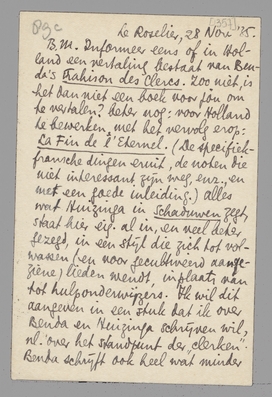 Le Roselier, 28 Nov. '35.
B.M. Informeer eens of in Hol-
land een vertaling bestaat van Ben-
da's Trahison des Clercs. Zoo niet, is
het dan niet een boek voor jou om
te vertalen? beter nog: voor Holland
te bewerken, met het vervolg erop:
La Fin de l'Eternel. (De specifiek-
fransche dingen eruit, de noten die
niet interessant zijn weg, enz., en
met een goede inleiding.) Alles
wat Huizinga in Schaduwen zegt,
staat hier eig. al in, en veel beter
gezegd, in een stijl die zich tot vol-
wassen (en voor gecultiveerd aange-
ziene) lieden wendt, inplaats van
tot hulponderwijzers. Ik wil dit
aangeven in een stuk dat ik over
Benda en Huizinga schrijven wil,
nl. over het standpunt der "clerken".
Benda schrijft ook heel wat minder